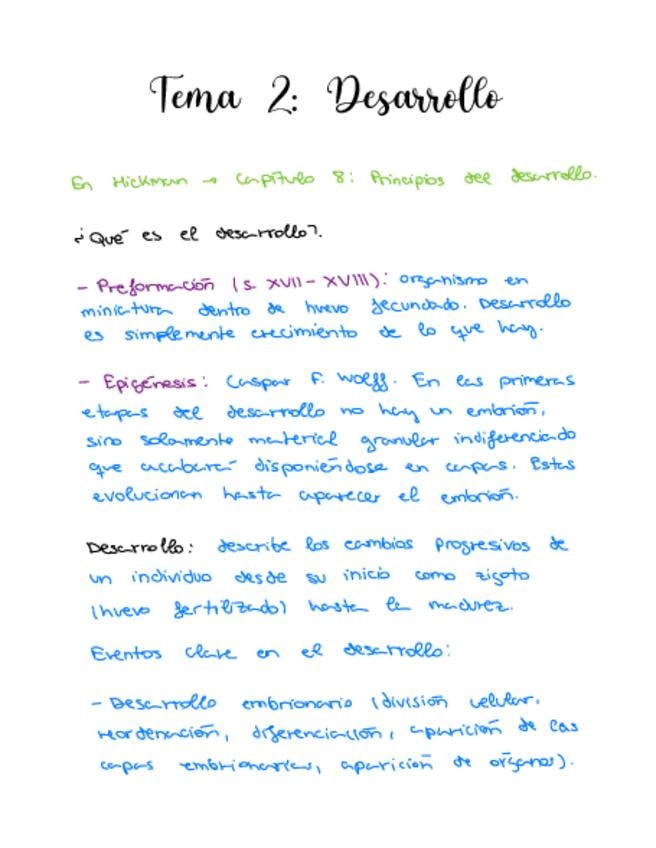 Tema 2: Desarrollo
En Hickman → Capítulo 8: Principios del desarrollo.
¿Qué es el desarrollo?.
- Preformación (s. XVII - XVIII): organismo en
miniatura dentro de huevo fecundado. Desarrollo
es simplemente crecimiento de lo que hay.
- Epigénesis: Caspar F. Wolff. En las primeras
etapas del desarrollo no hay un embrión,
sino solamente material granular indiferenciado
que acabará disponiéndose en capas. Estas
evolucionan hasta aparecer el embrión.
Desarrollo: describe los cambios progresivos de
un individuo desde su inicio como zigoto
(huevo fertilizado) hasta la madurez.
Eventos clave en el desarrollo:
- Desarrollo embrionario (división celular,
reordenación, diferenciación, aparición de las
capas embrionarias, aparición de órganos).